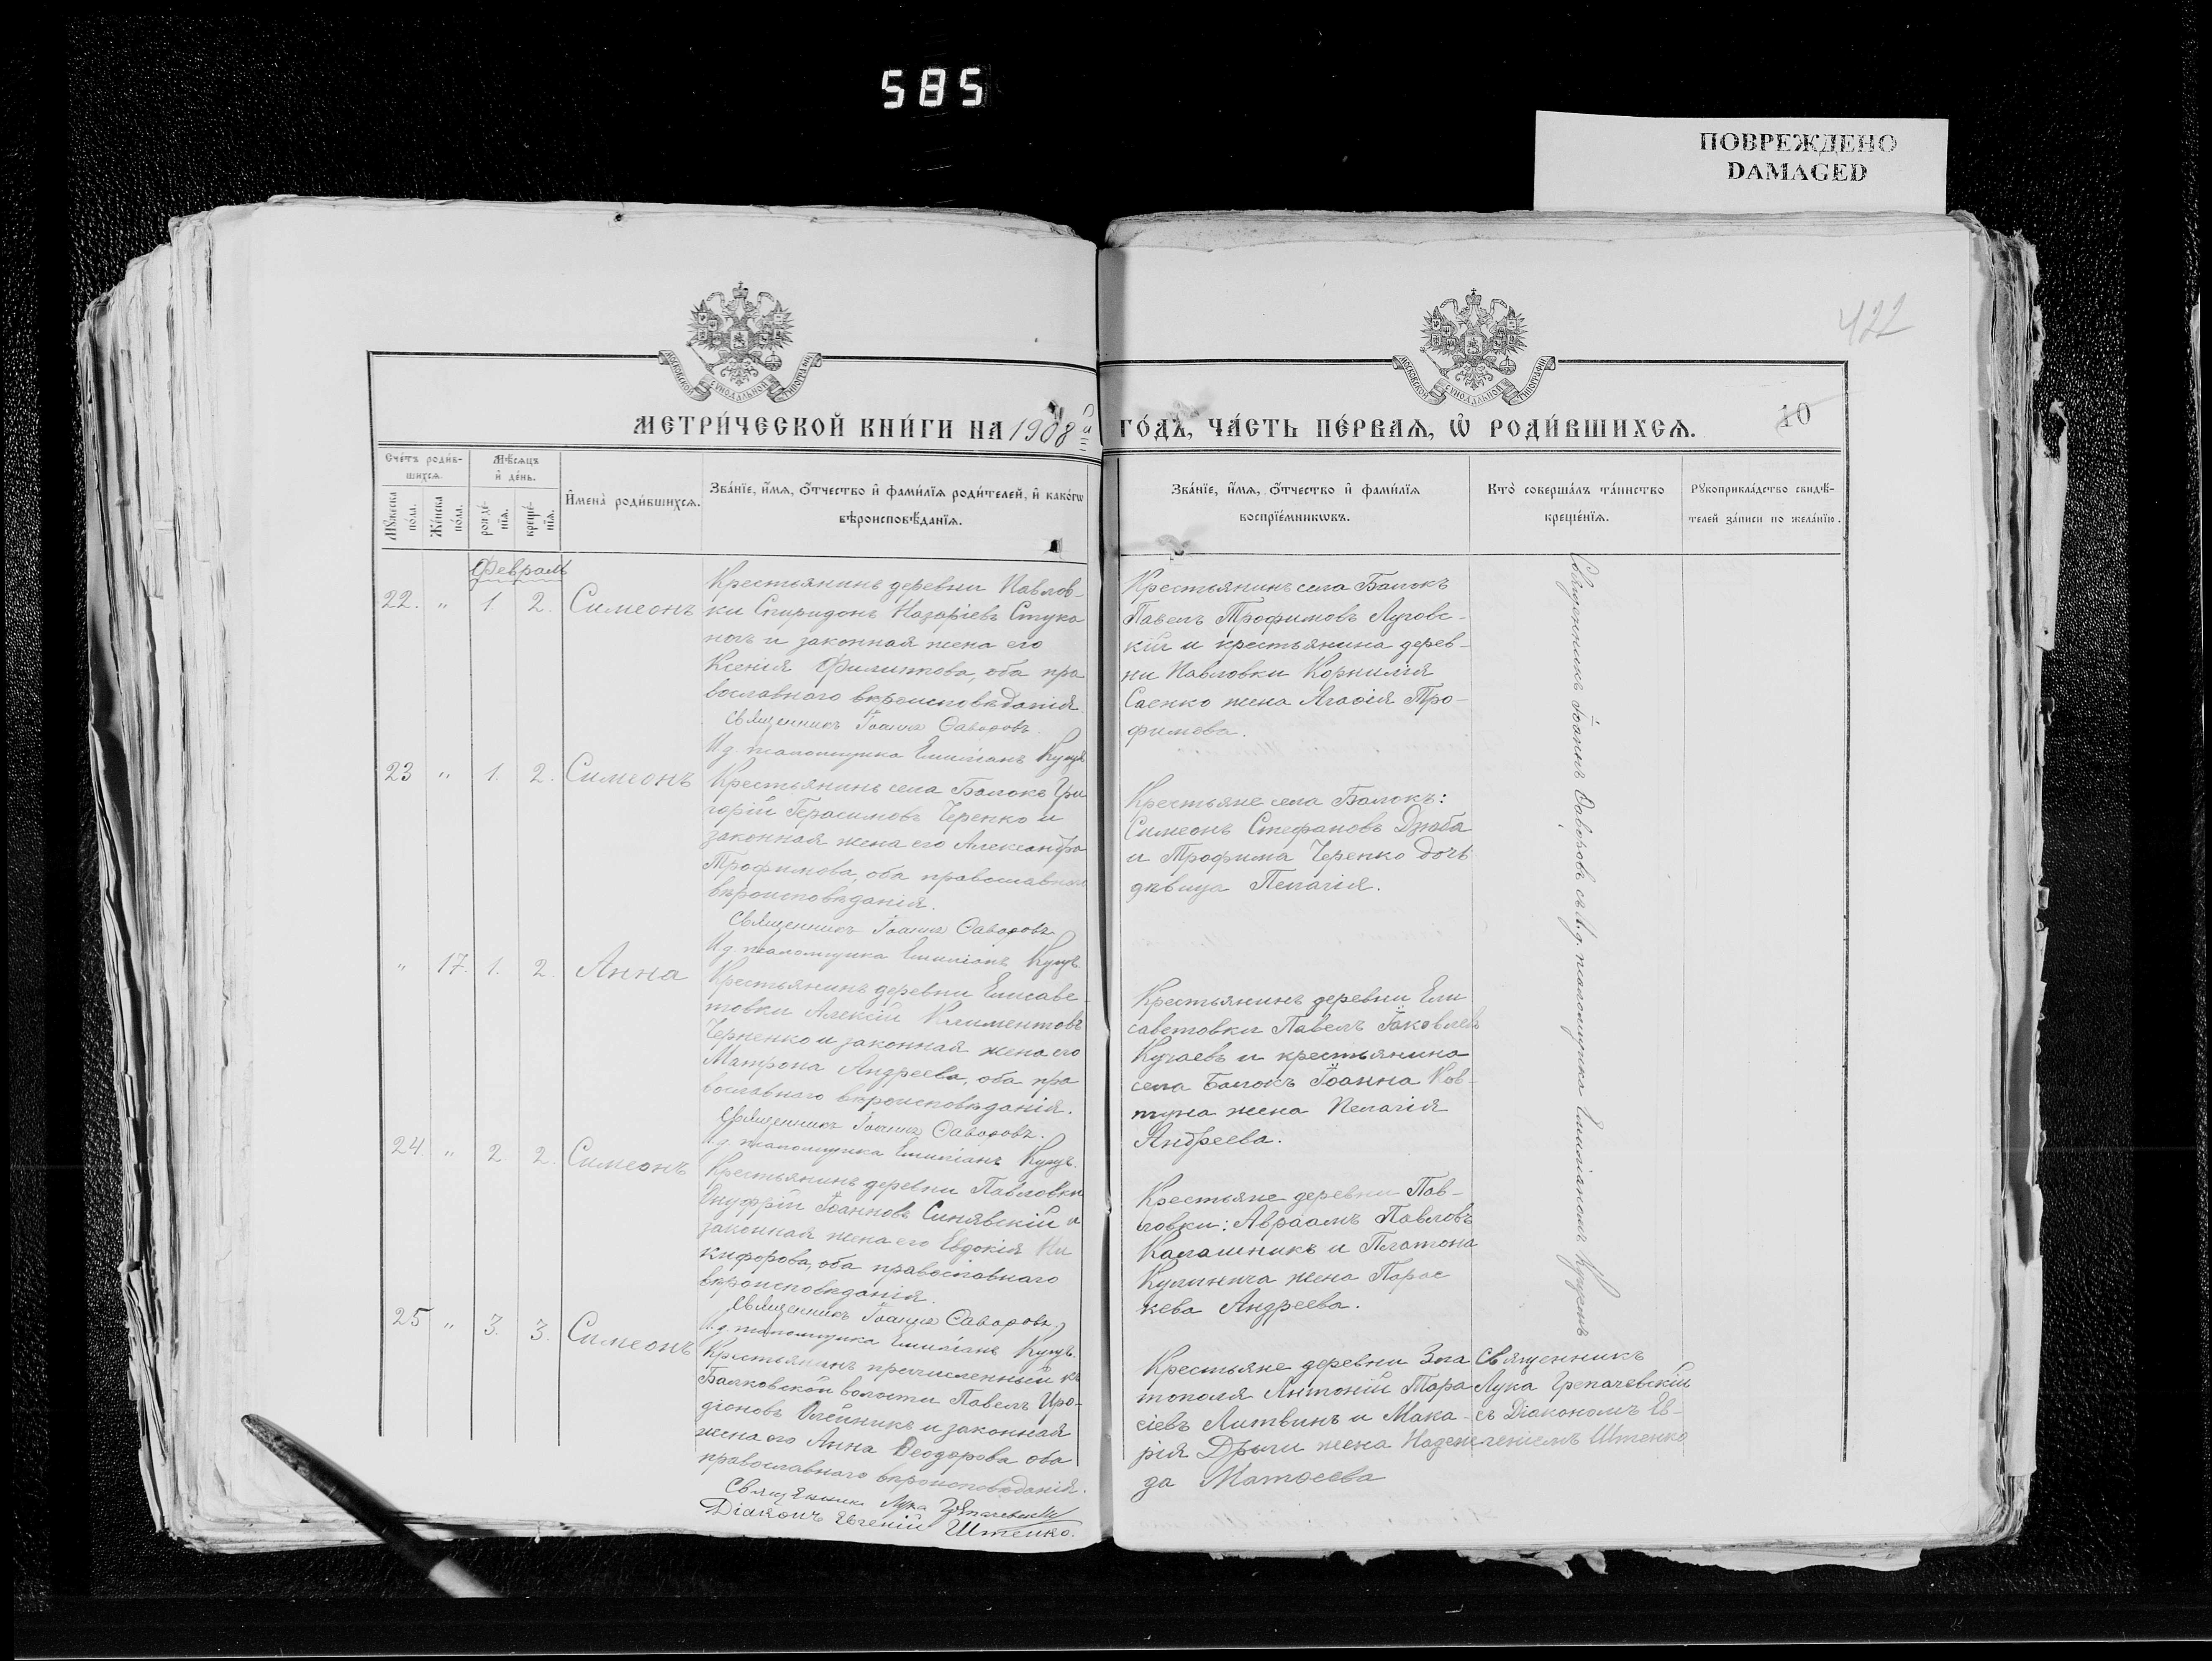 585
ПОВРЕЖДЕНО
DAMAGED
422
МОСКОВСКОЙ СѴНОДАЛЬНОЙ ТИПОГРАФІИ
МОСКОВСКОЙ СѴНОДАЛЬНОЙ ТИПОГРАФІИ
МЕТРИ́ЧЕСКОЙ КНИ́ГИ НА 1908й
ГО́ДЪ, ЧА́СТЬ ПЕ́РВАѦ, Ѡ҆ РОДИ́ВШИХСѦ.
10
Сче́тъ роди́в-
шихсѧ.
Мѹ́жеска по́ла.
Же́нска по́ла.
Мѣ́сѧцъ
и҆ де́нь.
рожде́-
нїѧ.
креще́-
нїѧ.
И҆мена̀ роди́вшихсѧ.
Зва́нїе, и҆́мѧ, ѻ҆́тчество и҆ фами́лїѧ роди́телей, и҆ како́гѡ
вѣроисповѣ́данїѧ.
Зва́нїе, и҆́мѧ, ѻ҆́тчество и҆ фами́лїѧ
воспрїе́мникѡвъ.
Кто̀ соверша́лъ та́инство
креще́нїѧ.
Рѹкоприкла́дство свидѣ́-
телей за́писи по жела́нїю.
Февраль
22. " 1. 2. Симеонъ
Крестьянинъ деревни Павлов-
ки Спиридонъ Назаріевъ Стука
ногъ и законная жена его
Ксенія Филиппова, оба пра
вославнаго вѣроисповѣданія
Священникъ Іоаннъ Ѳаворовъ.
И.д. псаломщика Емиліанъ
Крестьянинъ села Балокъ
Павелъ Трофимовъ Луговс-
кій и крестьянина дерев-
ни Павловки Корнилія
Саенко жена Агаѳія Тро-
фимова.
23 " 1. 2. Симеонъ
Крестьянинъ села Балокъ Гри
горій Герасимовъ Черепко и
законная жена его Александра
Трофимова, оба православнаго
вѣроисповѣданія.
Священникъ Іоаннъ Ѳаворовъ
И.д. псаломщика Емиліанъ
Крестьяне села Балокъ:
Симеонъ Стефановъ Дзюба
и Трофима Черепко дочь
дѣвица Пелагія.
" 17. 1. 2. Анна
Крестьянинъ деревни Елисаве-
товки Алексій Климентовъ
Черненко и законная жена его
Матрона Андреева, оба пра
вославнаго вѣроисповѣданія.
Священникъ Іоаннъ Ѳаворовъ.
И.д. псаломщика Емиліанъ
Крестьянинъ деревни Ели
саветовки Павелъ Іаковлев
Кучаевъ и крестьянина
села Балокъ Іоанна Ков-
туна жена Пелагія
Андреева.
24. " 2. 2. Симеонъ
Крестьянинъ деревни Павловки
Онуфрій Іоанновъ Синявскій и
законная жена его Евдокія Ни
кифорова, оба православнаго
вѣроисповѣданія.
Священникъ Іоаннъ Ѳаворовъ
И.д. псаломщика Емиліанъ
Крестьяне деревни Пав-
ловки: Авраамъ Павловъ
Калашникъ и Платона
Кулинича жена Парас
кева Андреева.
Священникъ Іоаннъ Ѳаворовъ съ И.д. псаломщика Емиліаномъ
25 " 3. 3. Симеонъ
Крестьянинъ причисленный къ
Балковской волости Павелъ Иро-
діоновъ Олейникъ и законная
жена его Анна Ѳеодорова оба
православнаго вѣроисповѣданія.
Священникъ Лука
Діаконъ Евгеній Штенко.
Крестьяне деревни Зла
тополя Антоній Тара
сіевъ Литвинъ и Мака-
рія Дрыги жена Надеж
да Матѳеева
Священникъ
Лука Грепачевскій
съ Діакономъ Ев-
геніемъ Штенко